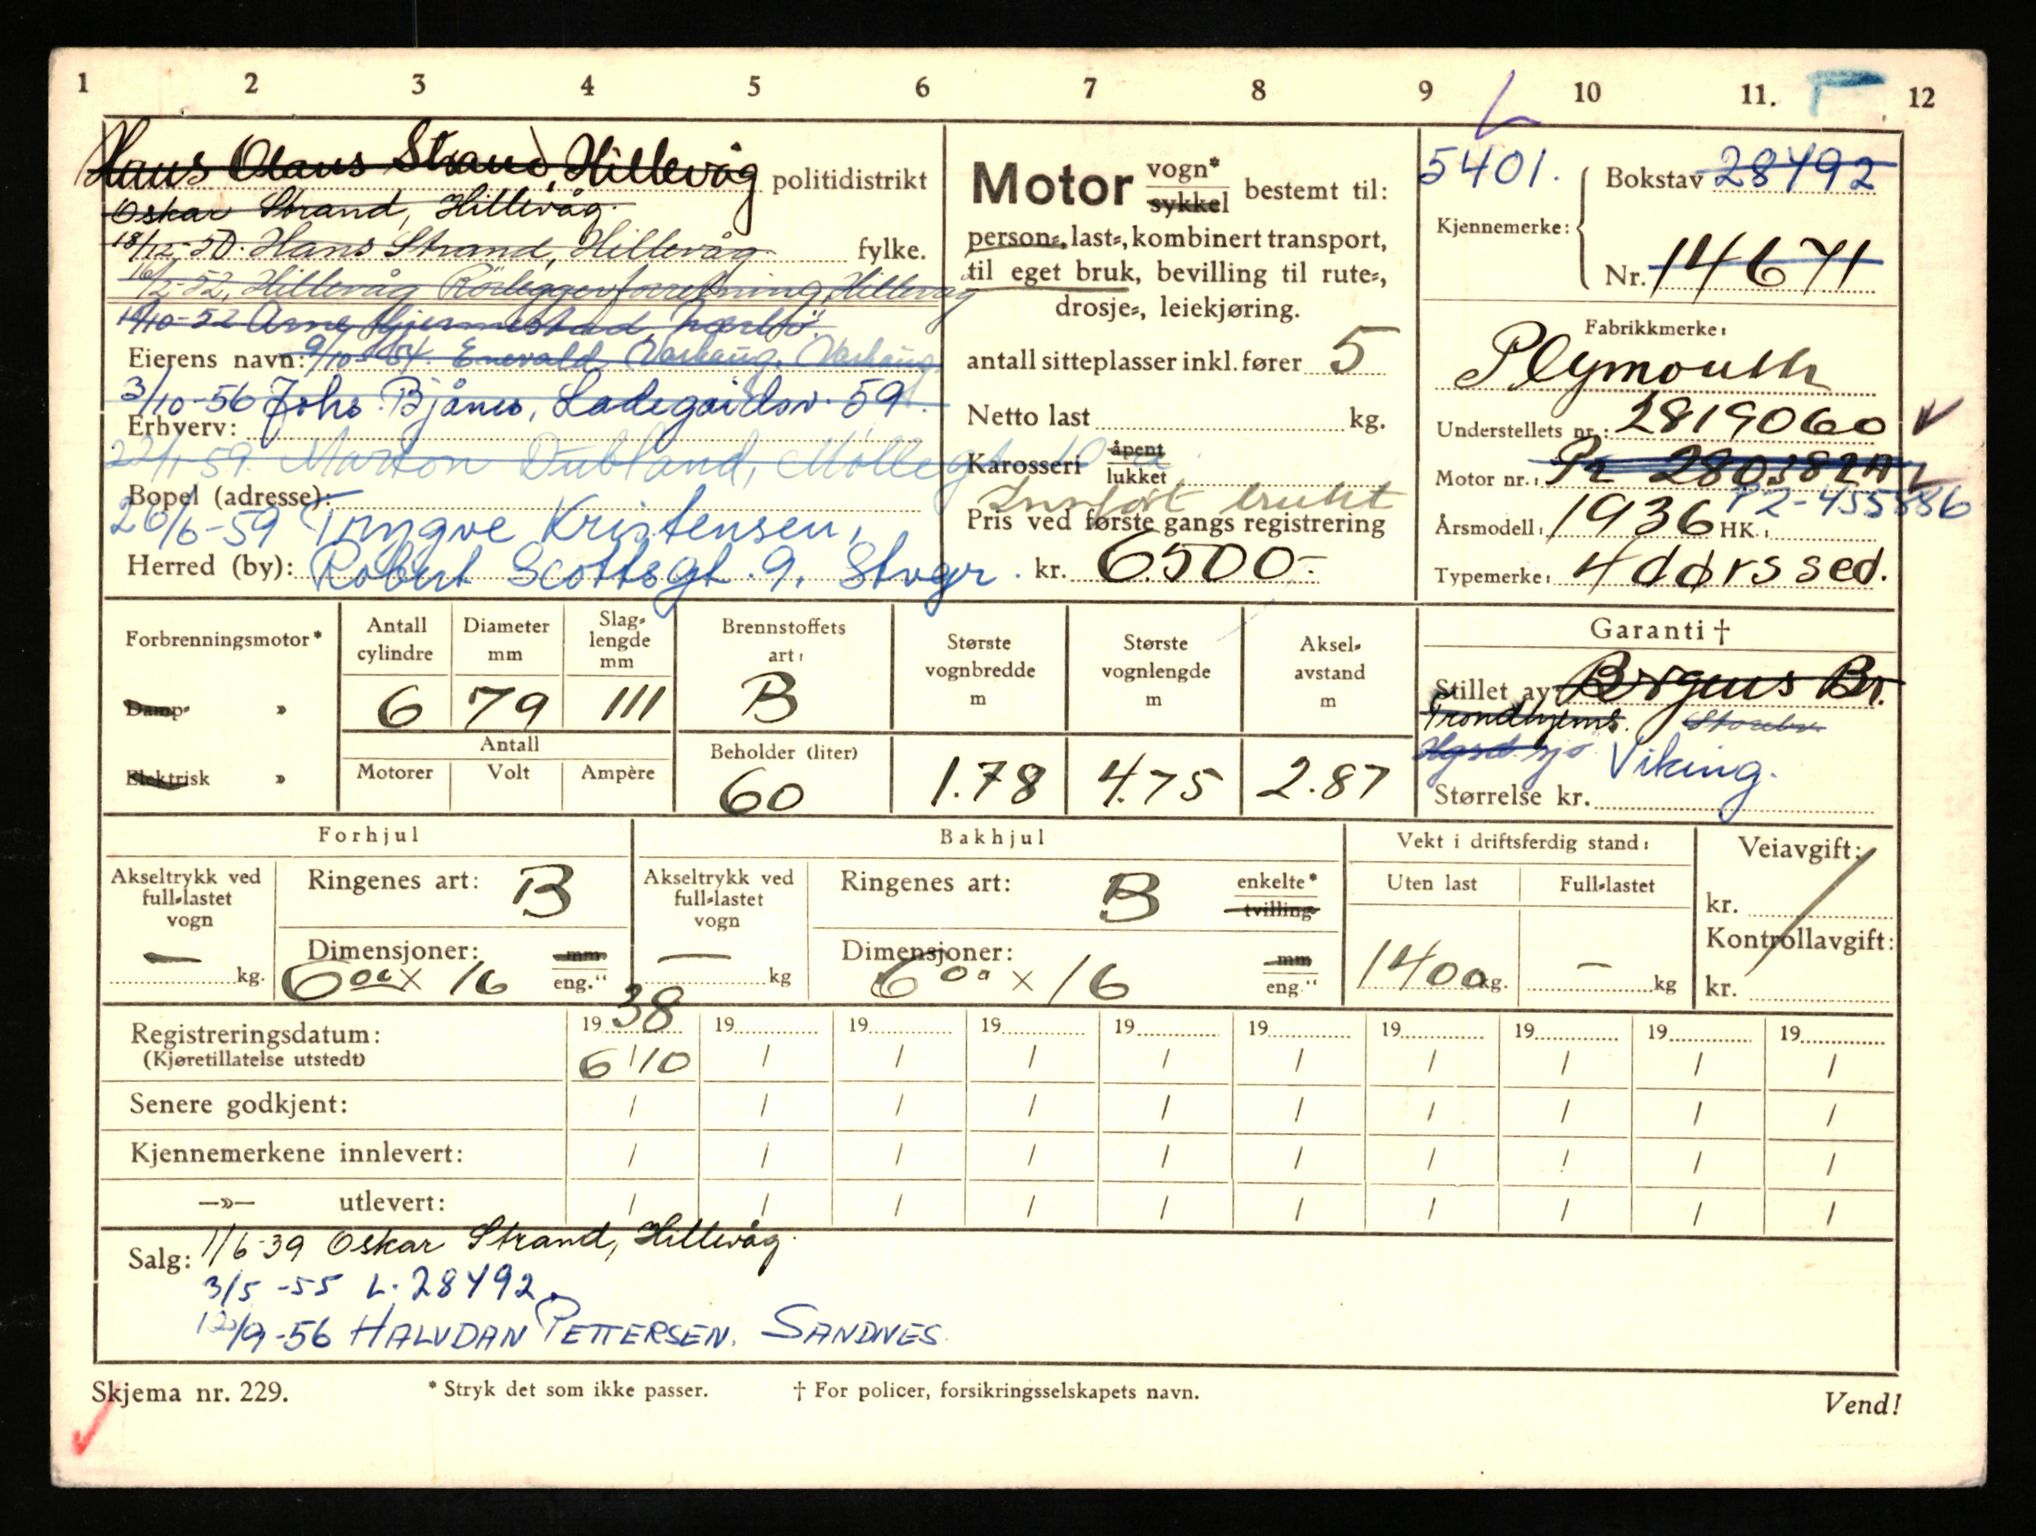 1 2 3 4 5 6 7 8 9 10 11. 12
Hans Olaus Strand, Hillevåg politidistrikt
Oskar Strand, Hillevåg.
18/12-50. Hans Strand, Hillevåg fylke.
16/2-52, Hillevåg Rörleggerforretning, Hillevåg
Eierens navn: 9/10-54. Enevald Varhaug, Varhaug
3/10-56 Johs. Bjånes, Ladegårdsv. 59.
Erhverv:
22/1-59. Marton Dubland, Møllegt. 10
Bopel (adresse):
26/6-59 Tryggve Kristensen,
Herred (by): Robert Scottsgt. 9. Stvgr.
Motor vogn* sykkel bestemt til:
person-, last-, kombinert transport,
til eget bruk, bevilling til rute-,
drosje-, leiekjøring.
antall sitteplasser inkl. fører 5
Netto last kg.
Karosseri åpent lukket
Innført brukt
Pris ved første gangs registrering
kr. 6500.-
5401. Bokstav 28492
Kjennemerke:
Nr. 14671
Fabrikkmerke:
Plymouth
Understellets nr.: 2819060
Motor nr.: P2 280382A
P2-455886
Årsmodell: 1936 HK.:
Typemerke: 4 dørs sed.
Forbrenningsmotor*
Damp- »
Elektrisk »
Antall cylindre Diameter mm Slag-lengde mm
6 79 111
Antall
Motorer Volt Ampère
Brennstoffets art:
B
Beholder (liter)
60
Største vognbredde m
1.78
Største vognlengde m
4.75
Aksel-avstand m
2.87
Garanti †
Stillet av: Bergens Br.
Trondhjems. Storebr.
Hgsd. sjø Viking.
Størrelse kr.
Forhjul
Akseltrykk ved full-lastet vogn
— kg.
Ringenes art: B
Dimensjoner: mm
6oo x 16 eng."
Bakhjul
Akseltrykk ved full-lastet vogn
— kg
Ringenes art: B enkelte* tvilling
Dimensjoner: mm
6oo x 16 eng"
Vekt i driftsferdig stand:
Uten last Full-lastet
1400 kg. — kg
Veiavgift:
kr.
Kontrollavgift:
kr.
Registreringsdatum: 19 38 19 19 19 19 19 19 19 19 19
(Kjøretillatelse utstedt) 6/10 / / / / / / / / /
Senere godkjent: / / / / / / / / / /
Kjennemerkene innlevert: / / / / / / / / / /
—»— utlevert: / / / / / / / / / /
Salg: 1/6-39 Oskar Strand, Hillevåg.
3/5-55 L. 28492.
12/9-56 HALVDAN PETTERSEN. SANDNES.
Skjema nr. 229. * Stryk det som ikke passer. † For policer, forsikringsselskapets navn. Vend!